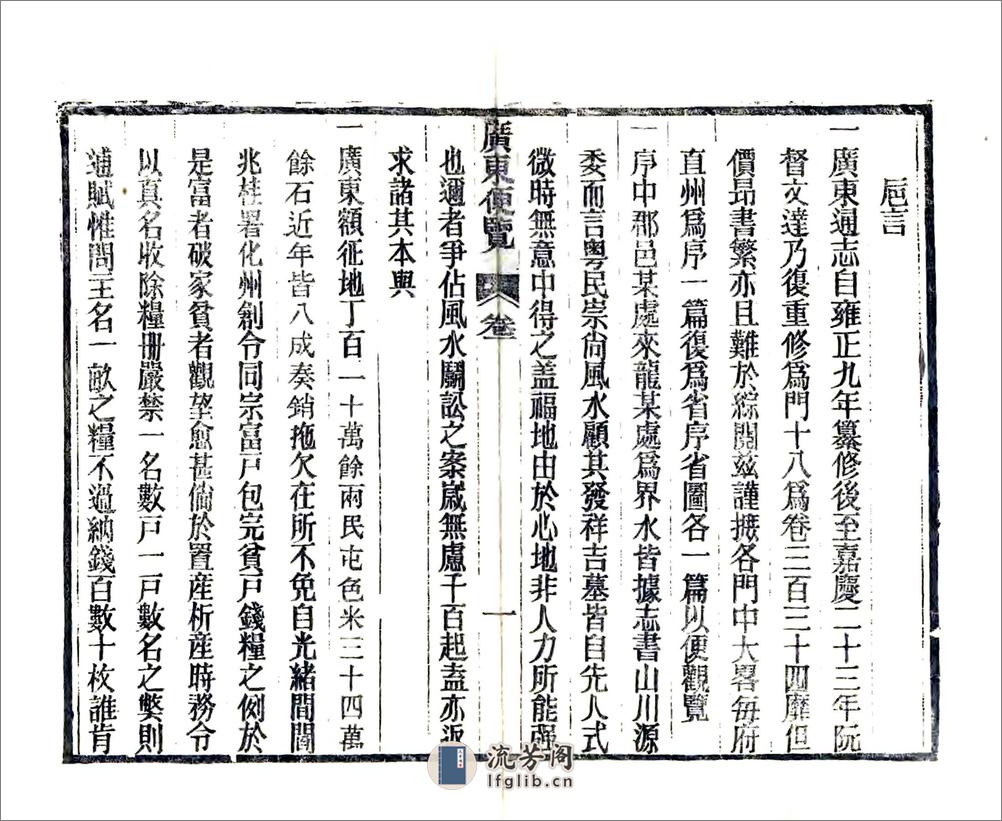 巵言
一廣東通志自雍正九年纂修後至嘉慶二十三年阮
督文達乃復重修爲門十八爲卷三百三十四靡但
價昻書繁亦且難於綜閱茲謹撮各門中大畧每府
直州爲序一篇復爲省序省圖各一篇以便觀覽
一序中郡邑某處來龍某處爲界水皆據志書山川源
委而言粵民崇尙風水顧其發祥吉墓皆自先人式
微時無意中得之盖福地由於心地非人力所能强
廣東便覽 卷 一
也邇者爭佔風水鬭訟之案歲無慮千百起盍亦返
求諸其本與
一廣東額征地丁百一十萬餘兩民屯色米三十四萬
餘石近年皆八成奏銷拖欠在所不免自光緒間閻
兆桂署化州創令同宗富戸包完貧戸錢糧之例於
是富者破家貧者觀望愈甚倘於置産析産時務令
以真名收除糧册嚴禁一名數戸一戸數名之獘則
逋賦惟問主名一畝之糧不過納錢百數十枚誰肯
流芳阁
lfglib.cn